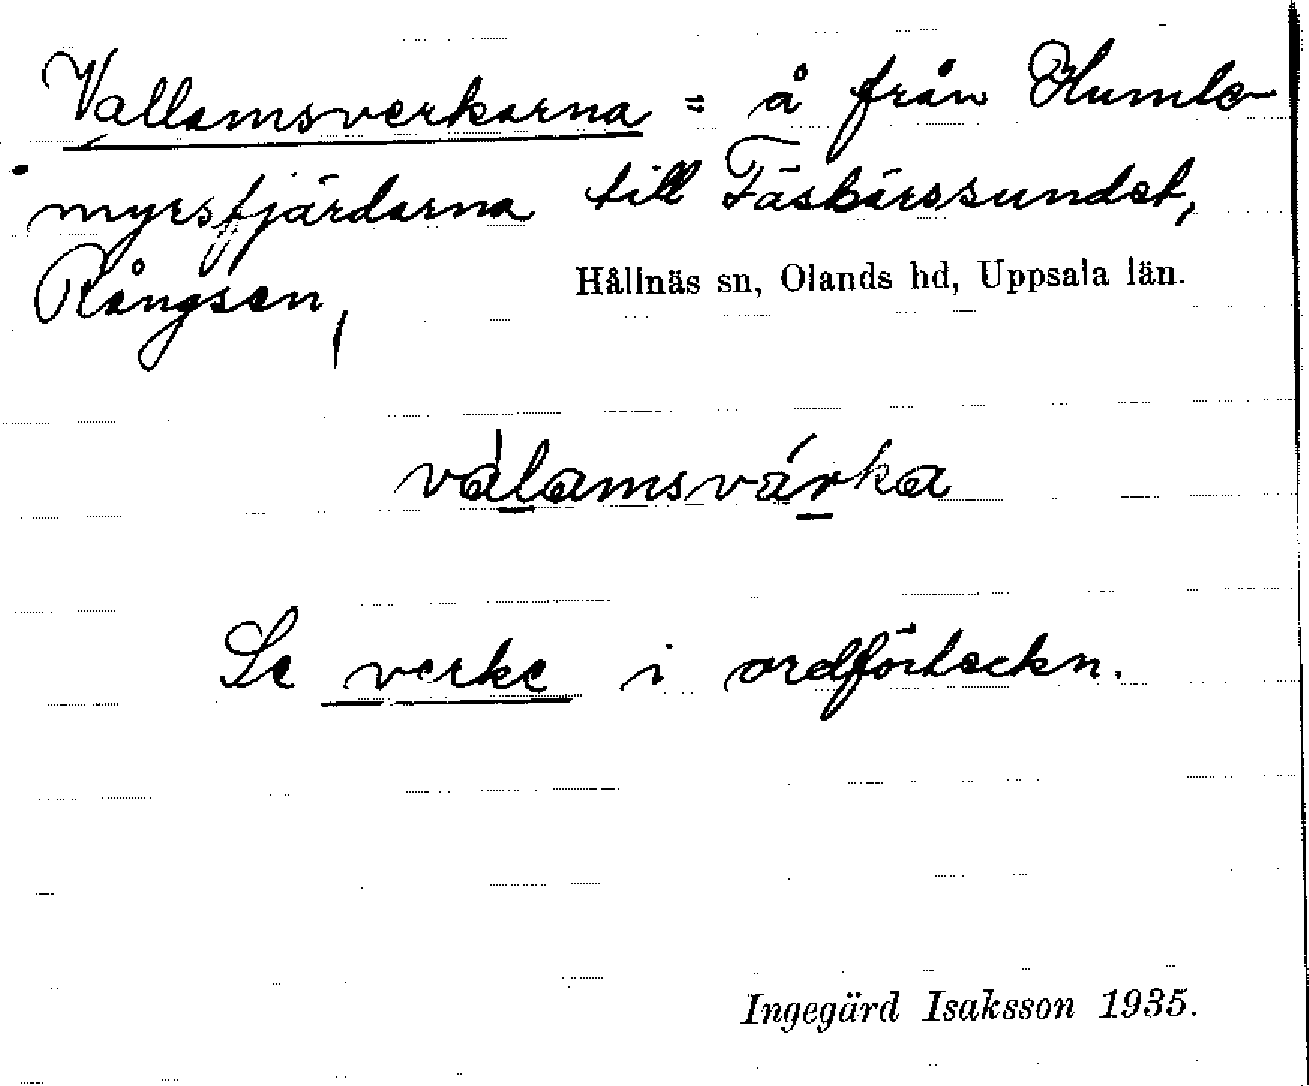 Vallamsverkarna = å från Humle-
myrsfjärdarna till Täskärssundet,
Rångsen,
Hållnäs sn, Olands hd, Uppsala län.
válamsvárka
Se verke i ordförteckn.
Ingegärd Isaksson 1935.